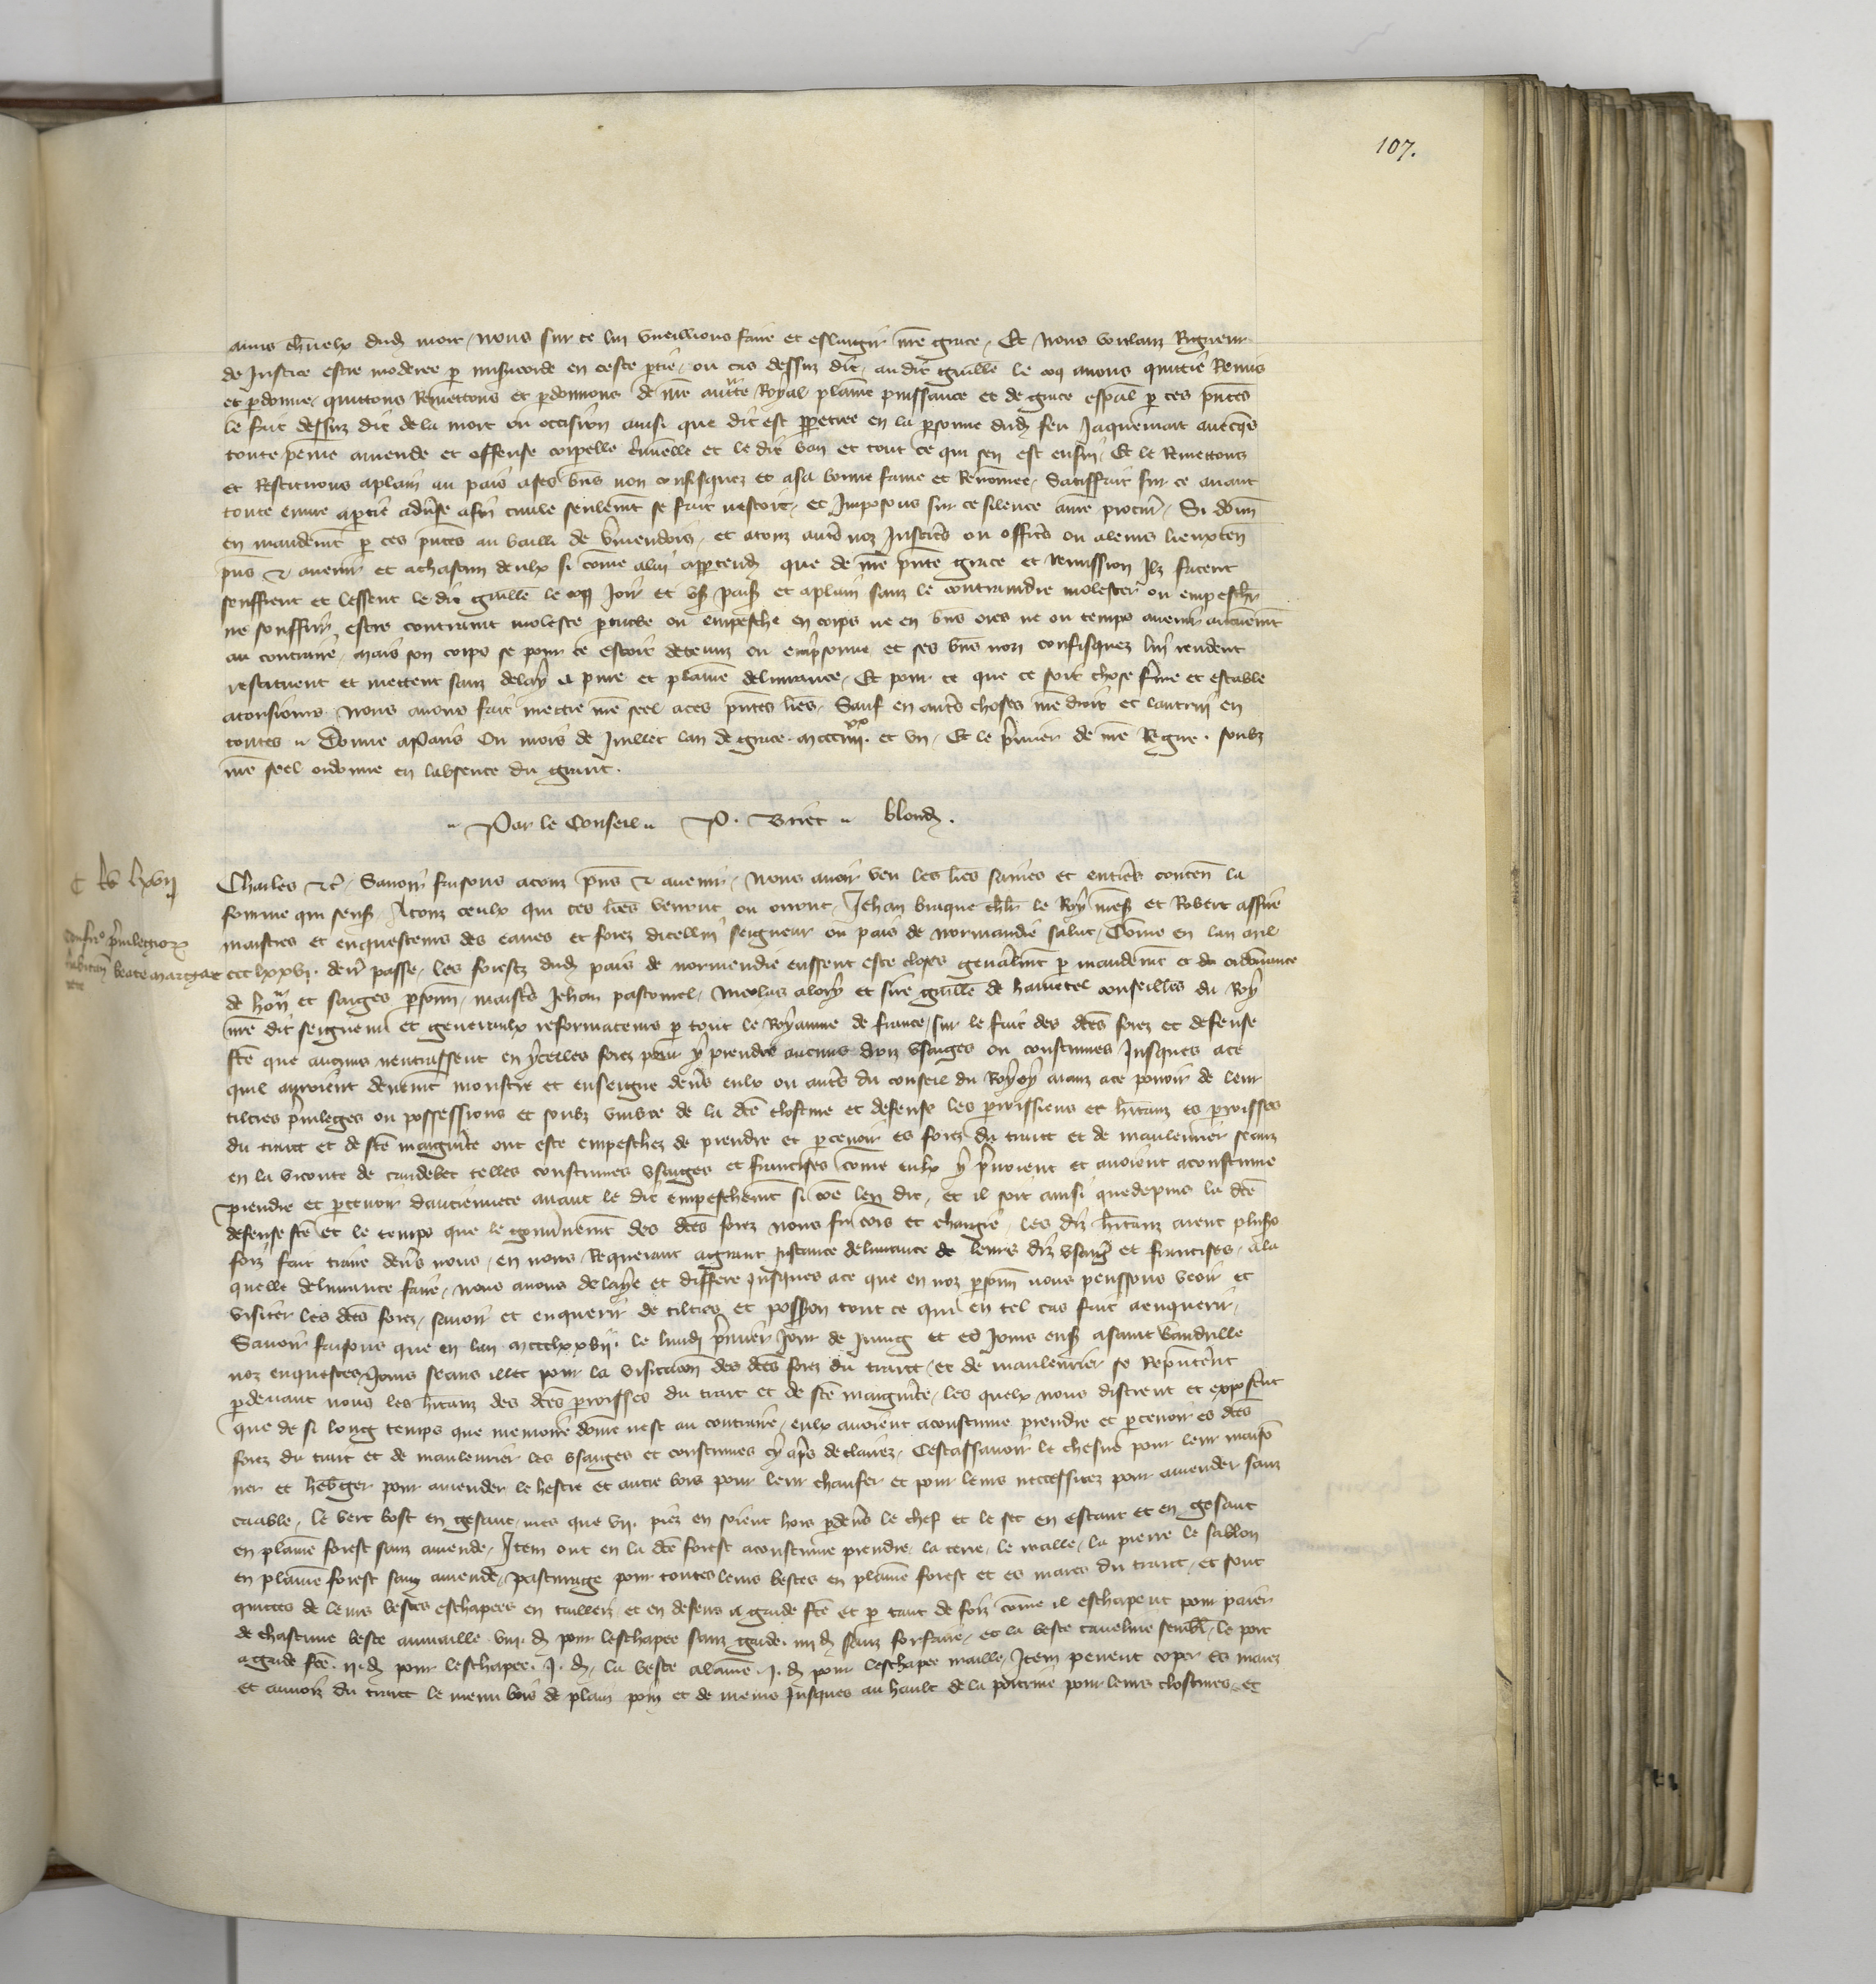 107.
amis charnelx dud mort, nous sur ce lui vueillions faire et eslargir nre grace, Et nous voulanz Rigueur
de Justice estre moderee p misericorde en ceste ptie, ou cas dessuz dit, audit Guille le coq avons quittie Remis
et pdonne, quittons Remettons et pdonnons de nre aucte Royal plaine puissance et de grace espal p ces pntes
le fait dessuz dit de la mort ou occision ainsi que dit est ppetree en la psonne dud feu Jaquemart avecqs
toute peine amende et offense corpelle criminelle et le dit ban et tout ce qui sen est ensui, Et le Remettons
et Restituons aplain au pais a ses bns non confisquez et asa bonne fame et Renomee, Satiffait sur ce avant
toute euvre aptie adverse afin civile seulemt se fait nestoit, et Imposons sur ce silence anre procur, Si donn
en mandemt p ces pntes au bailli de Vermendois, et atouz autrs noz Justicrs ou officrs ou aleurs lieuxten
pns & avenir et achascun deulx si come alui apptend que de nre pnte grace et remission Ilz facent
seuffrent et lessent le dit Guille le coq Joir et us paisib et aplain sanz le contraindre molester ou empescher
ne souffrir estre contraint moleste pturbe ou empesche en corps ne en bns ores ne ou temps avenir aucunemt
au contraire, mais son corps se pour ce estoit detenuz ou emprisonne et ses bns non confisquez lui rendent
restituent et mettent sanz delay a pure et plaine delivrance, Et pour ce que ce soit chose ferme et estable
atousiours Nous avons fait mettre nre seel aces pntes lres, Sauf en autrs choses nre droit et lautrui en
toutes. Donne aparis Ou mois de Juillet lan de grace mccciiii xx et un, Et le premier de nre Regne, soubz
nre seel ordonne en labsence du grant.
Par le Conseil P. Briet blond.
C lxvii
Charles &c, Savoir faisons atouz pns & avenir, Nous avoir veu les lres saines et entieres conten la
fourme qui sens, Atouz ceulx qui ces lres verront ou orront, Jehan braque chlr le Roy nres et Robert assire
Confirmo privilegior
habitan beate margare
te
maistres et enquesteurs des eaues et forez dicellui seigneur ou pais de normandie salut, Come en lan mil
ccclxxvi. derr passe, les forestz dud pais de normendie eussent este closes genalmt p mandemt et de ordonnance
de hon et saiges psonn, maists Jehan pastourel, Nicolas alory et sire guille de hametel conseilles du Roy
nre dit seigneur et generaulx reformateurs p tout le Royaume de france, sur le fait des dces forez et defense
fce que aucuns nentrassent en ycelles forez pour y prendre aucuns droiz usaiges ou coustumes Jusques ace
quil auroient deuemt monstre et enseigne devs eulx ou autrs du conseil du Roy airanz ace povoir de leur
tiltres privileges ou possessions et soubz umbre de la dce closture et defense les proissiens et hitanz es proisses
du trait et de ste marguerite ont este empeschez de prendre et pcevoir es forez du trait et de maulevrier seanz
en la viconte de caudebec telles coustumes usaiges et franchises come eulx y prnoient et avoient acoustume
prendre et pcevoir dancienneté avant le dit empeschemt si coe len dit, et il soit ainsi que depuis la dce
defense fce et le temps que le gouvnemt des dces forez nous fu comis et chargie, les diz hitanz aient plusrs
foiz fait traire devs nous, en nous Requerant agrant Instance delivrance de leurs diz usaiges et franchises, ala
quelle delivrance faire, nous avons delaye et differe Jusques ace que en noz psonn nous peussons veoir et
visiter les dces forez, savoir et enquerir de tiltres et possion tout ce qui en tel cas fait aenquerir,
Savoir faisons que en lan mccclxxvii. le lundi premier Jour de Juing et es Jours ens asaint Vandrille
noz enquestes Jours seans illec pour la visitacon des dces forez du trait et de maulevrier se Repnterent
pdevant nous les hitanz des dces proisses du trait et de ste marguerite, les quelx nous distrent et exposerent
que de si long temps que memoire dome nest au contraire, eulx avoient acoustume prendre et pcevoir es dces
forez du trait et de maulevrier les usaiges et coustumes cy aprs declairez, Cestassavoir le chesne pour leur maiso
ner et heberger pour amender le hestre et autre bois pour leur chaufer et pour leurs neccessitez pour amender sanz
coustable, le vert bost en gesant, mes que vii. piez en soient hors pdevs le chef et le sec en estant et en gesant
en plaine forest sanz amende, Item ont en la dce forest acoustume prendre, la terre, le malle, la pierre le sablon
en plaine forest sanz amende, pasturage pour toutes leurs bestes en plaine forest et es mares du trait, et sont
quictes de leurs bestes eschapees en tailleiz et en defens a garde fce et p tant de foiz come il eschapent pour paier
de chascune beste aumaille viii. d pour leschapee sanz garde iiii d sanz forfaire, et la beste caveline semblt, le porc
a garde fce ii. d pour leschapee. i. d, la beste alaine i. d pour leschapee maille, Item pevent coper es marez
et aunoiz du trait le menu bois de plain poin et de meins Jusques au hault de la poitrine pour leurs clostures, et